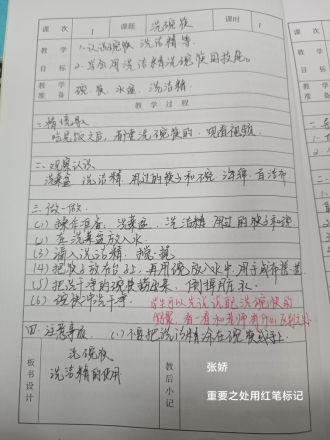 课次 1 课题 洗碗筷 课时 1
教学目标 1.认识碗筷、洗洁精等
2.学会用洗洁精洗碗筷的技能。
教学准备 碗、筷、水盆、洗洁精
教学过程
一、
吃完饭之后,需要洗碗筷的,观看视频
二、观察认识
洗菜盆 洗洁精 用过的筷子和碗 海绵 百洁布
三、做一做
(1)操作准备:洗菜盆、洗洁精 用过的筷子和碗
(2)在洗菜盆放入水
(3)滴入洗洁精,搅一搅
(4)把筷子放在台上,再用碗放入水中,用
(5)把洗干净的碗筷 倒掉用后水
(6)碗筷冲洗干净
学生可以先说说自己洗碗筷的
步骤,看一看和老师有什么区别之处
四、注意事项 (1)不要把洗洁精涂在碗、筷或手上
板书设计
洗碗筷
洗洁精的使用
教后小记
张娇
重要之处用红笔标记